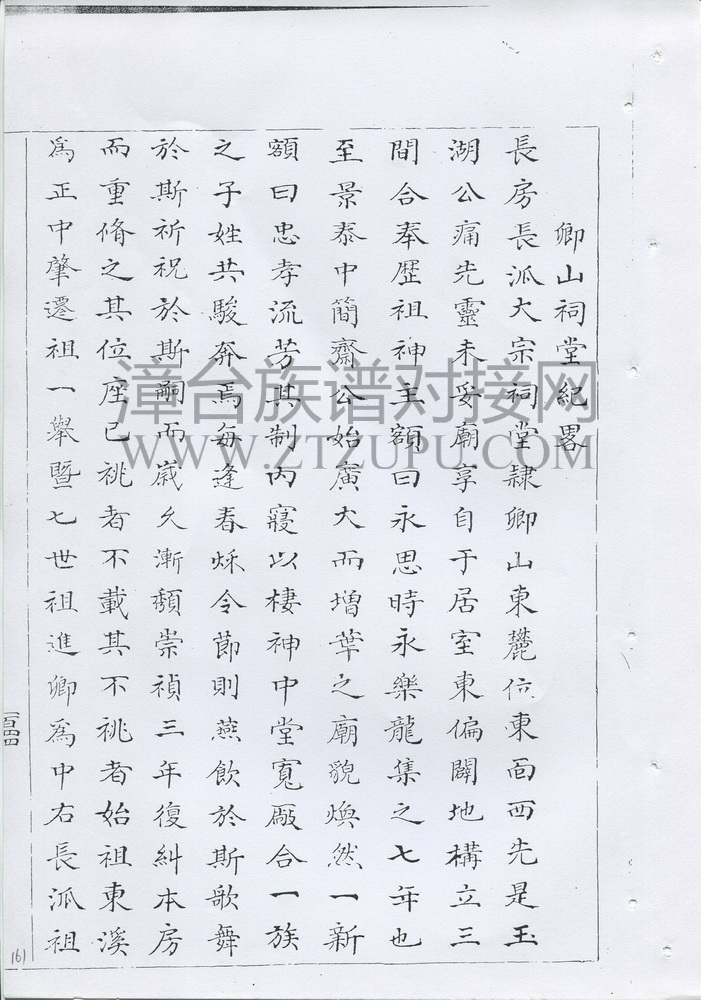 卿山祠堂紀畧
長房長派大宗祠堂隸卿山東麓位東面西先是玉
湖公痛先靈未妥廟享自于居室東偏闢地構立三
間合奉歷祖神主額曰永思時永樂龍集之七年也
至景泰中簡齋公始廣大而增葺之廟貌煥然一新
額曰忠孝流芳其制內寢以棲神中堂寬厰合一族
之子姓共駿奔焉每逢春秌令節則燕飲於斯歌舞
於斯祈祝於斯嗣而歲久漸頽崇禎三年復糾本房
而重脩之其位座已祧者不載其不祧者始祖東溪
為正中肇遷祖一舉暨七世祖進卿為中右長派祖
漳台族谱对接网
WWW.ZTZUPU.COM
一百四四
161